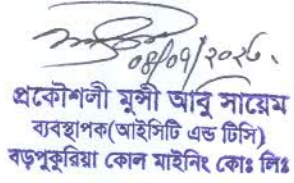 ০৪/০৭/২০২৬.
প্রকৌশলী মুন্সী আবু সায়েম
ব্যবস্থাপক(আইসিটি এন্ড টিসি)
বড়পুকুরিয়া কোল মাইনিং কোঃ লিঃ